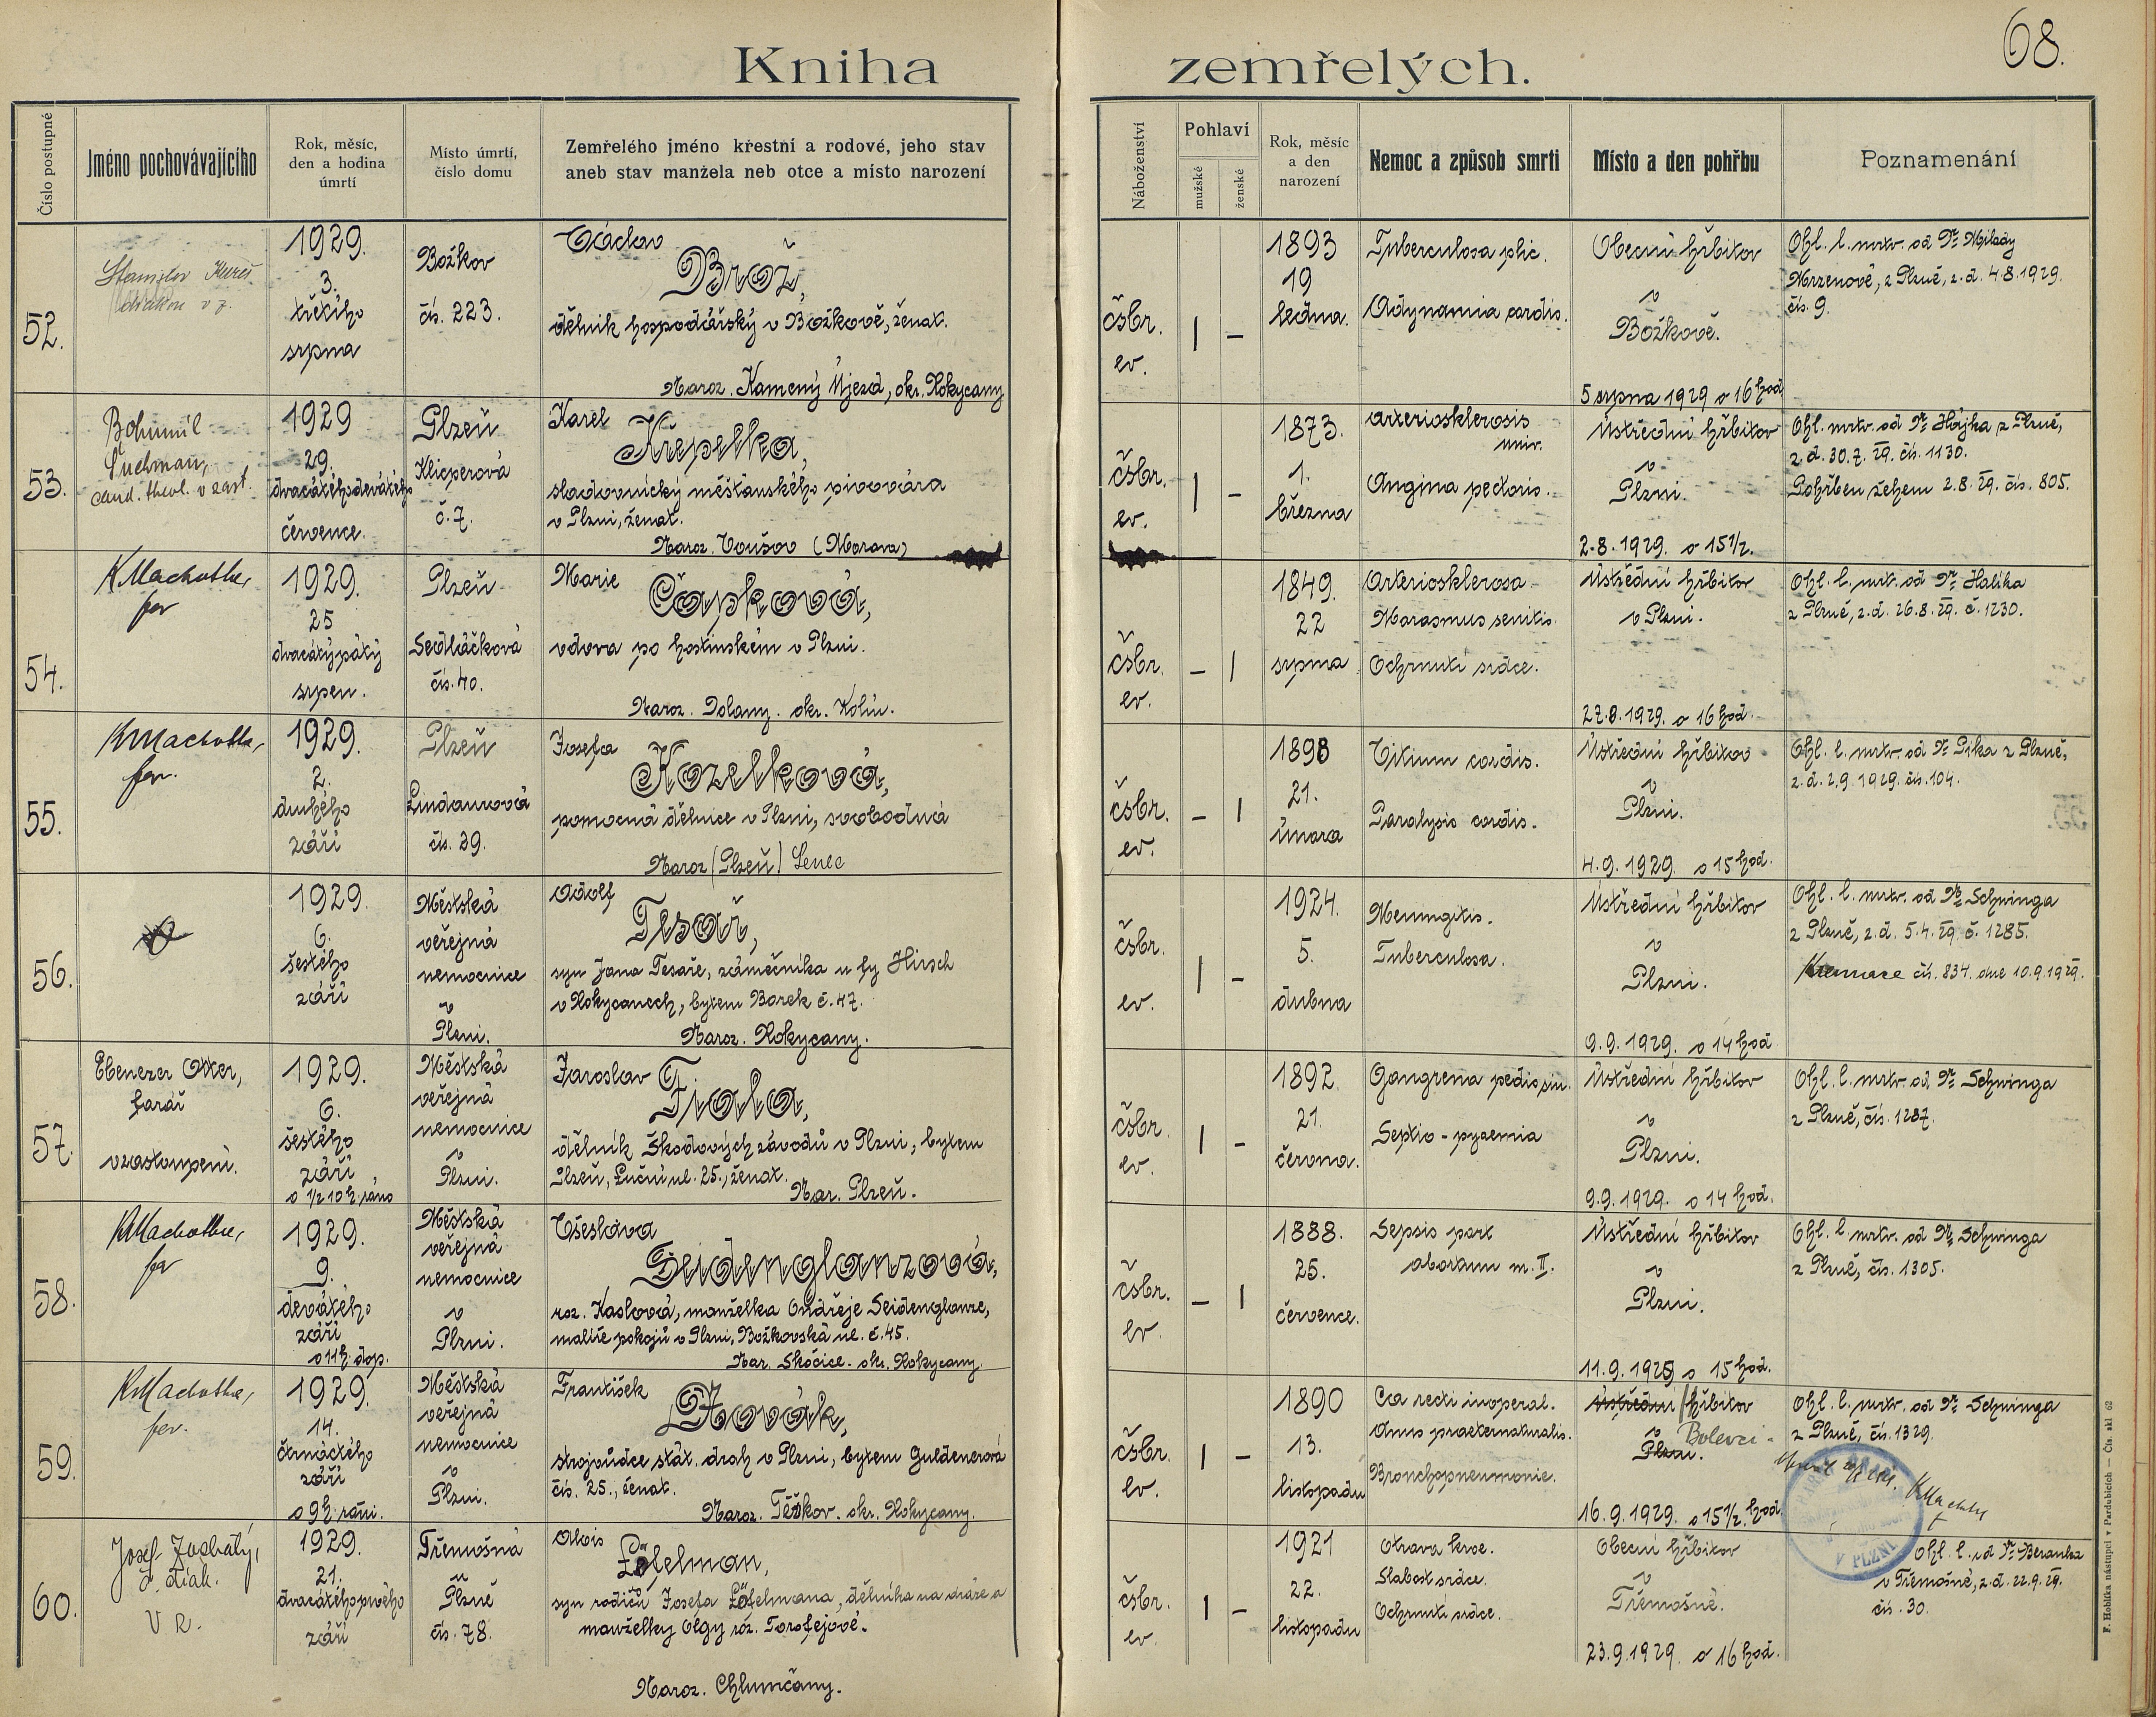 68.
Kniha zemřelých.
Číslo postupné
Jméno pochovávajícího
Rok, měsíc,
den a hodina
úmrtí
Místo úmrtí,
číslo domu
Zemřelého jméno křestní a rodové, jeho stav
aneb stav manžela neb otce a místo narození
Náboženství
Pohlaví
mužské
ženské
Rok, měsíc
a den
narození
Nemoc a způsob smrti
Místo a den pohřbu
Poznamenání
52.
Stanislav
v z.
1929.
3.
třetího
srpna
Božkov
čís. 223.
Václav
Brož,
dělník hospodářský v Božkově, ženat.
Naroz. Kamený Újezd, okr. Rokycany
čsbr.
ev.
| –
1893
19
ledna.
Tuberculosa plic.
Adynamia cordis.
Obecní hřbitov
v
Božkově.
5 srpna 1929 o 16 hod
Ohl. l. mrtv. od Dr. Milady
z Plzně, z. d. 4.8.1929.
čís. 9.
53.
Bohumil
cand. theol. v zast.
1929
29.
dvacátéhodevátého
července.
Plzeň
Klicperová
č. 7.
Karel
Křepelka,
sladovnický měšťanského pivovára
v Plzni, ženat.
Naroz. Toušov (Morava)
čsbr.
ev.
| –
1873.
1.
března
Arteriosklerosis
univ.
Angina pectoris.
Ústřední hřbitov
v
Plzni.
2.8.1929. o 15 1/2.
Ohl. mrtv. od Dr. Hájka z Plzně,
z d. 30.7. 29. čís. 1130.
Pohřben žehem 2.8. 29. čís. 805.
54.
KMachotka,
far
1929.
25
dvacátýpátý
srpen.
Plzeň
Sedláčková
čís. 40.
Marie
Čápková,
vdova po hostinském v Plzni.
Naroz. Dolany. okr. Kolín.
čsbr.
ev.
– |
1849.
22
srpna
Arteriosklerosa
Marasmus senilis.
Ochrnutí srdce.
Ústřední hřbitov
v Plzni.
27.8.1929. o 16 hod.
Ohl. l. mrt. od Dr. Halíka
z Plzně, z. d. 26.8. 29. č. 1230.
55.
KMachotka,
far.
1929.
2.
druhého
září
Plzeň
Lindaurová
čís. 39.
Josefa
Kozelková,
pomocná dělnice v Plzni, svobodná
Naroz (Plzeň) Senec
čsbr.
ev.
– |
1898
21.
února
Vitium cordis.
Paralysis cordis.
Ústřední hřbitov
v
Plzni.
4.9.1929. o 15 hod.
Ohl. l. mrtv. od Dr. Pika z Plzně,
z. d. 2.9.1929. čís. 104.
56.
1929.
6.
šestého
září
Městská
veřejná
nemocnice
v
Plzni.
Adolf
Tesař,
syn Jana Tesaře, zámečníka u fy Hirsch
v Rokycanech, bytem Borek č. 47.
Naroz. Rokycany.
čsbr.
ev.
| –
1924.
5.
dubna
Meningitis.
Tuberculosa.
Ústřední hřbitov
v
Plzni.
9.9.1929. o 14 hod
Ohl. l. mrtv. od Dr. Schwinga
z Plzně, z. d. 5.4. 29. č. 1285.
Kremace čís. 834. dne 10.9.1929.
57.
Ebenezer Otter,
farář
v zastoupení.
1929.
6.
šestého
září
o 1/2 10 h. ráno
Městská
veřejná
nemocnice
v
Plzni.
Jaroslav
Fiala,
dělník Škodových závodů v Plzni, bytem
Plzeň, Luční ul. 25., ženat.
Nar. Plzeň.
čsbr.
ev.
| –
1892.
21.
června.
Gangrena pedis sin.
Septio - pyaemia
Ústřední hřbitov
v
Plzni.
9.9.1929. o 14 hod.
Ohl. l. mrtv. od Dr. Schwinga
z Plzně, čís. 1287.
58.
KMachotka,
far
1929.
9.
devátého
září
o 11 h. dop.
Městská
veřejná
nemocnice
v
Plzni.
Česlava
Seidenglanzová,
roz. Kaslová, manželka Ondřeje Seidenglanze,
malíře pokojů v Plzni, Božkovská ul. č. 45.
Nar. Skočice. okr. Rokycany.
čsbr.
ev.
– |
1888.
25.
července.
Sepsis part
abortum m. II.
Ústřední hřbitov
v
Plzni.
11.9.1929 o 15 hod.
Ohl. l. mrtv. od Dr. Schwinga
z Plzně, čís. 1305.
59.
KMachotka,
far.
1929.
14.
čtrnáctého
září
o 9 h. ráni.
Městská
veřejná
nemocnice
v
Plzni.
František
Novák,
strojvůdce stát. drah v Plzni, bytem Guldenerová
čís. 25., ženat.
Naroz. Těškov. okr. Rokycany.
čsbr.
ev.
| –
1890
13.
listopadu
Cca recti inoperal.
Anus praeternaturalis.
Bronchopneumonie.
Ústřední hřbitov
v Bolevci
Plzni.
16.9.1929. o 15 1/2. hod.
Ohl. l. mrtv. od Dr. Schwinga
z Plzně, čís. 1329.
KMachotka
V PLZNI
60.
Josef
diak.
V R.
1929.
21.
dvacátéhoprvého
září
Třemošná
u
Plzně
čís. 78.
Alois
Löfelman,
syn rodičů Josefa Löfelmana, dělníka na dráze a
manželky Olgy roz. Torofejové.
Naroz. Chlumčany.
čsbr.
ev.
| –
1921
22.
listopadu
Otrava krve.
Slabost srdce.
Ochrnutí srdce.
Obecní hřbitov
v
Třemošné.
23.9.1929. o 16 hod.
Ohl. l. od Dr. Beránka
v Třemošné, z. d. 22.9. 29.
čís. 30.
F. Hoblíka nástupci v Pardubicích — Čís. skl 62